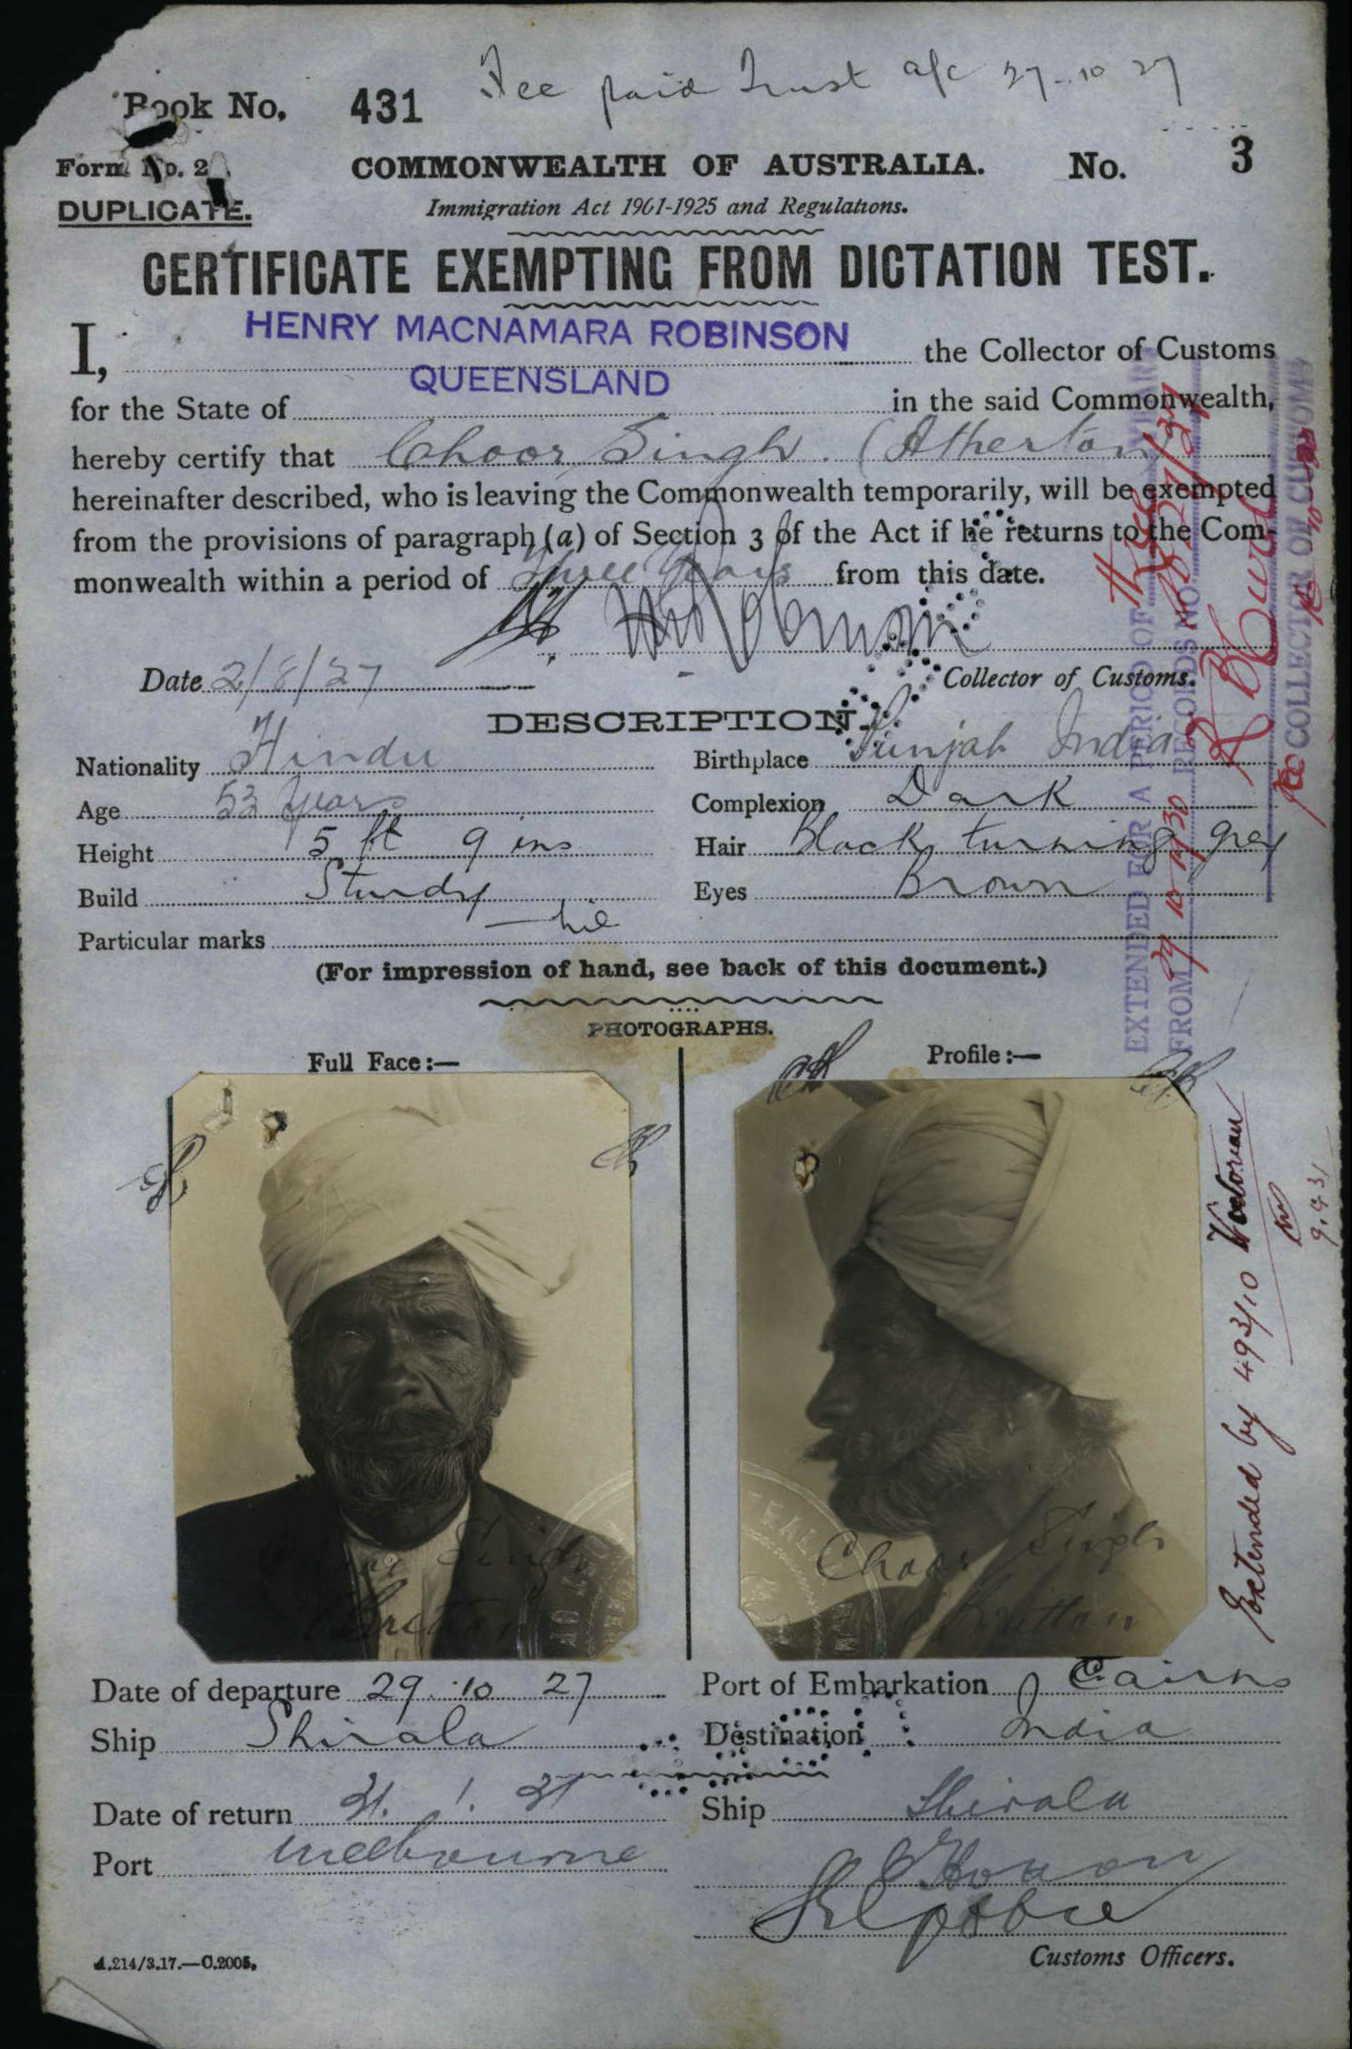 Fee paid Trust a/c 27-10 27
Book No. 431
Form No. 2
COMMONWEALTH OF AUSTRALIA. No. 3
DUPLICATE.
Immigration Act 1901-1925 and Regulations.
CERTIFICATE EXEMPTING FROM DICTATION TEST.
I, HENRY MACNAMARA ROBINSON the Collector of Customs
for the State of QUEENSLAND in the said Commonwealth,
hereby certify that Choor Singh. (Atherton)
hereinafter described, who is leaving the Commonwealth temporarily, will be exempted
from the provisions of paragraph (a) of Section 3 of the Act if he returns to the Com-
monwealth within a period of Three Years from this date.
Date 2/8/27 Collector of Customs.
DESCRIPTION.
Nationality Hindu Birthplace Punjab India
Age 53 Years Complexion Dark
Height 5 ft 9 ins Hair Black turning grey
Build Sturdy Eyes Brown
Particular marks nil
(For impression of hand, see back of this document.)
PHOTOGRAPHS.
Full Face:— Profile:—
EXTENDED FOR A PERIOD OF three YEARS
FROM 29 10 1930 RECORDS NO.
COLLECTOR OF CUSTOMS
Extended by 493/10 Victorian
9.4.31
Singh
Choor Singh
Date of departure 29.10 27 Port of Embarkation Cairns
Ship Shirala Destination India
Date of return 31. 1. 31 Ship Shirala
Port Melbourne
Customs Officers.
A.214/3.17.—C.2005.